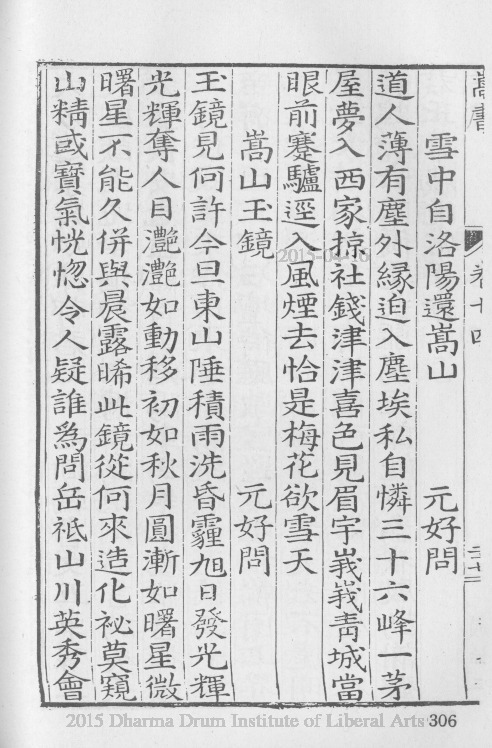 嵩書
卷十四
雪中自洛陽還嵩山 元好問
道人薄有塵外緣迫入塵埃私自憐三十六峰一茅
屋夢入西家掠社錢津津喜色見眉宇峩峩青城當
眼前蹇驢逕入風煙去恰是梅花欲雪天
嵩山玉鏡 元好問
玉鏡見何許今旦東山陲積雨洗昏霾旭日發光輝
光輝奪人目灔灔如動移初如秋月圓漸如曙星微
曙星不能久併與晨露晞此鏡從何來造化祕莫窺
山精或寶氣恍惚令人疑誰為問岳祗山川英秀會
2015 Dharma Drum Institute of Liberal Arts
306